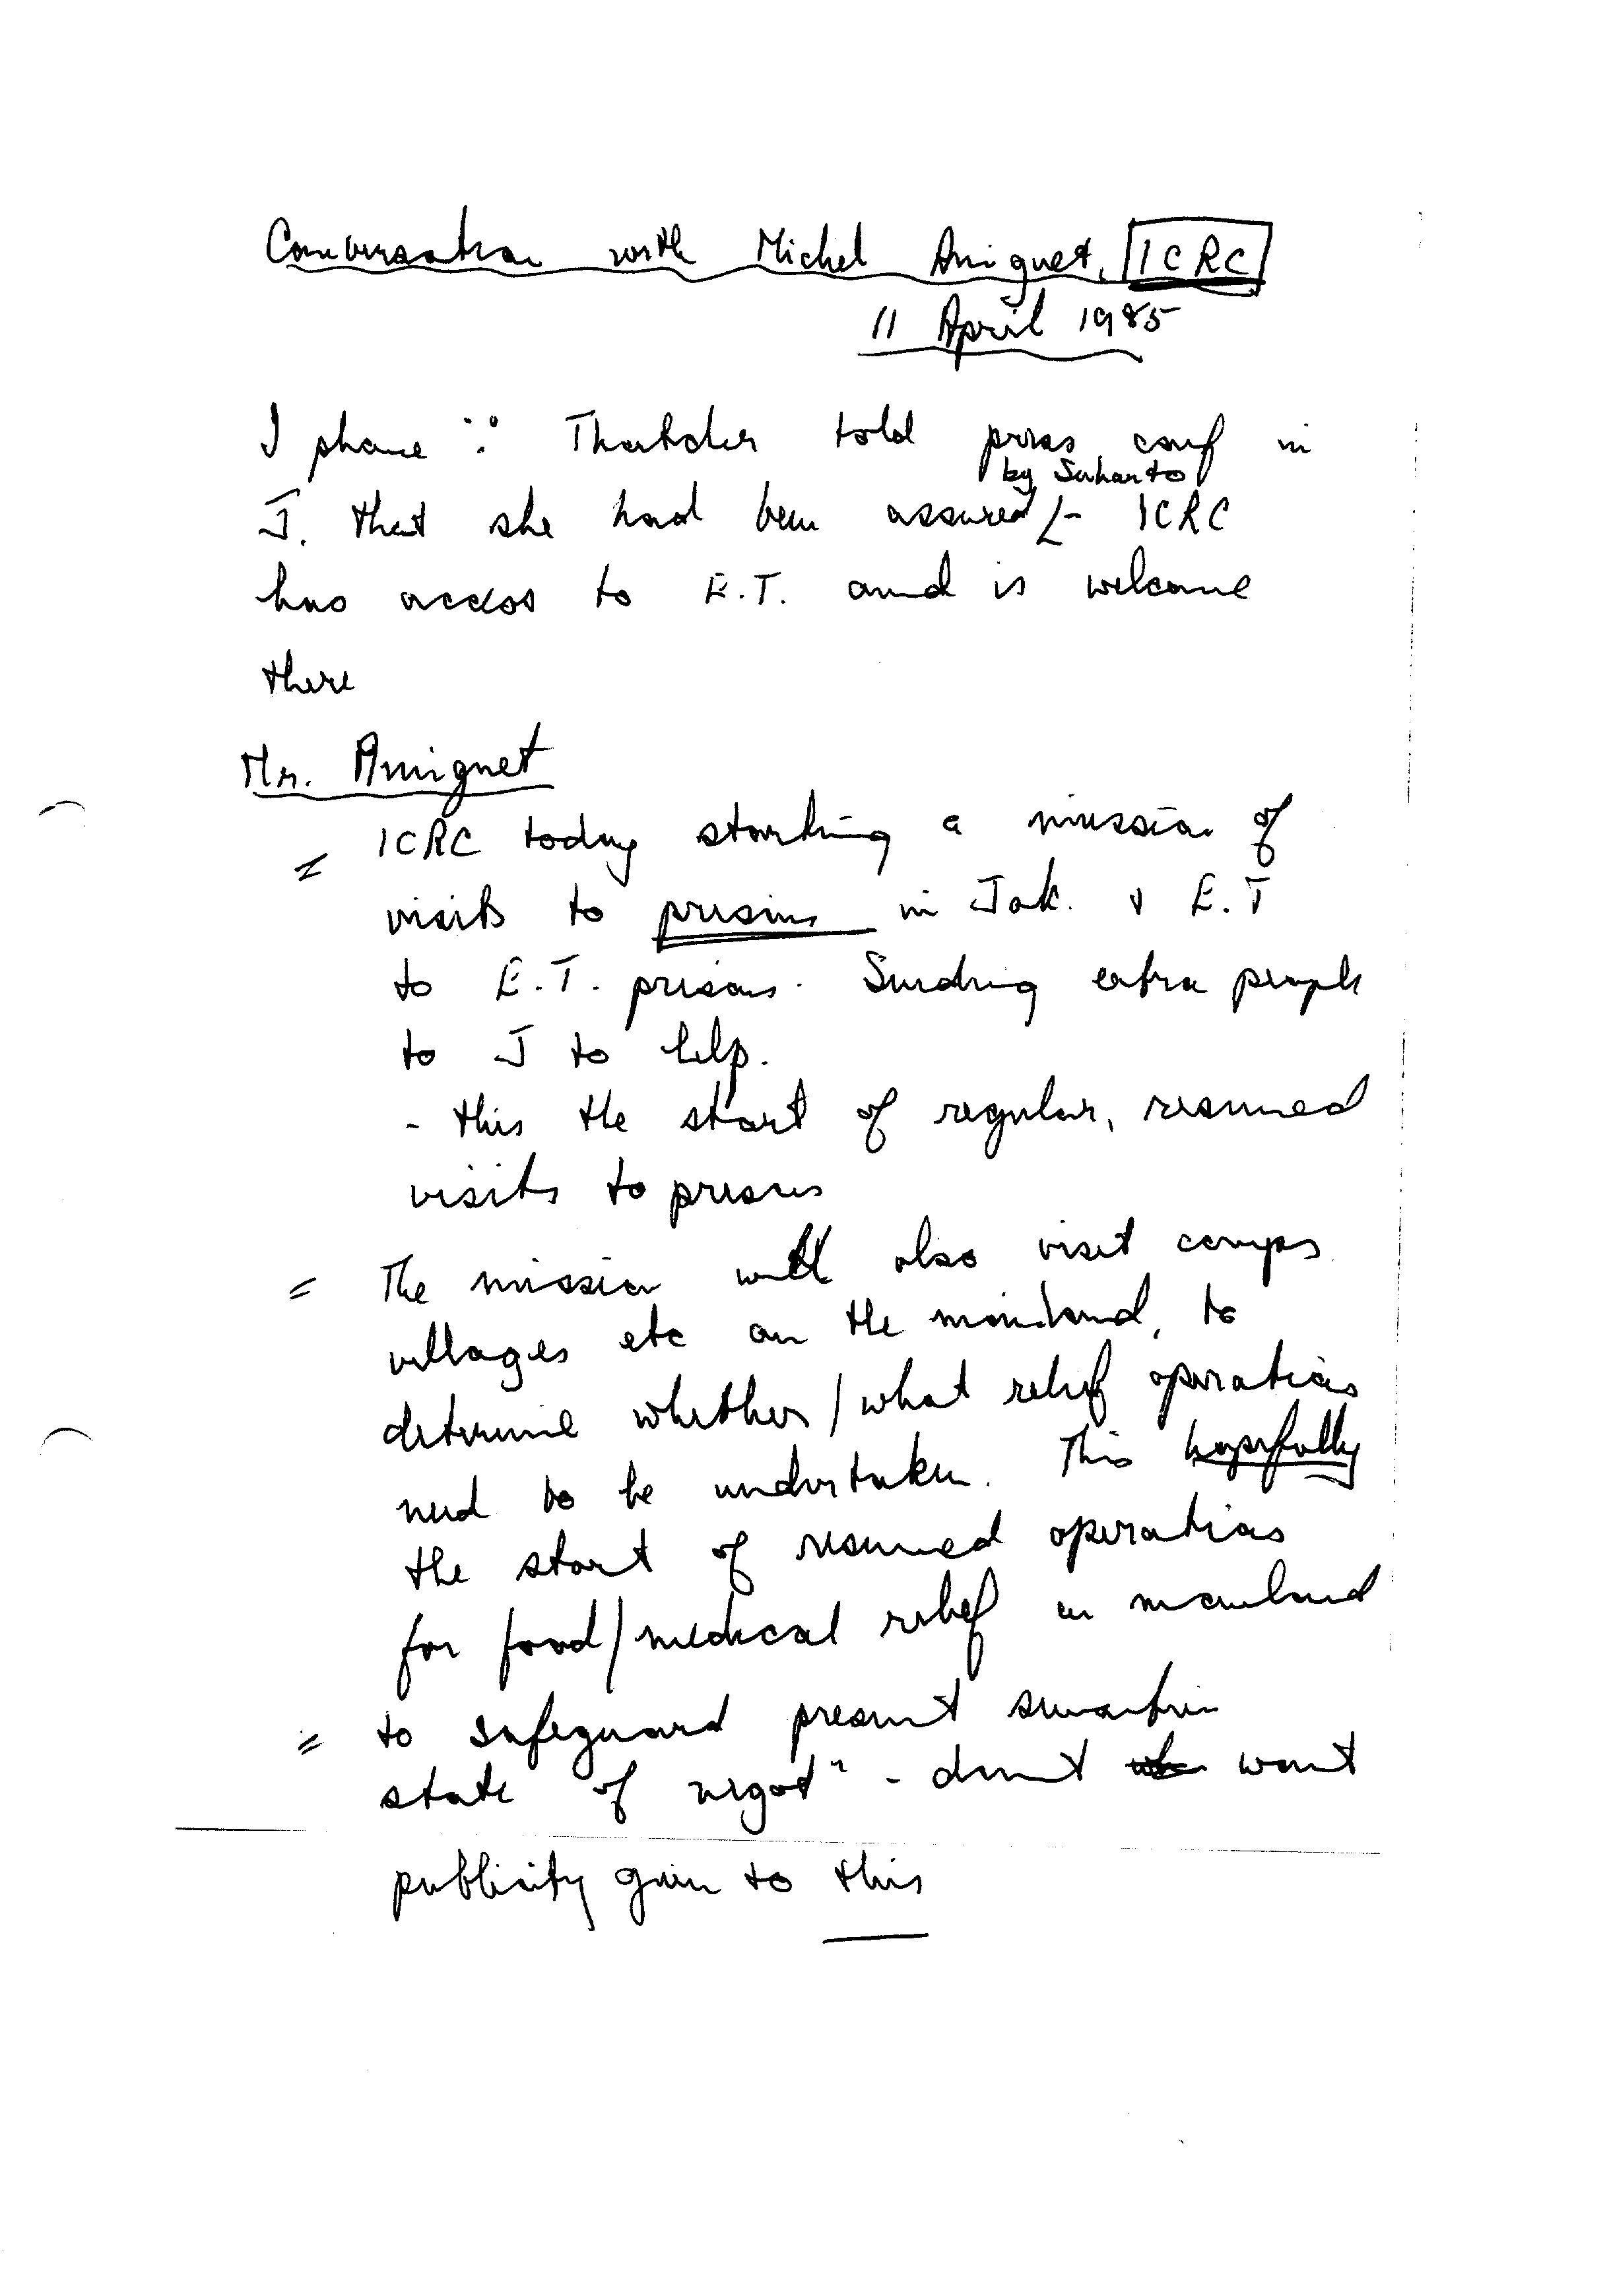 Conversation with Michel Amiguet, ICRC
11 April 1985
I phone ∵ Thatcher told press conf in
by Suharto
J. that she had been assured – ICRC
has access to E.T. and is welcome
there
Mr. Amiguet
= ICRC today starting a mission of
visits to prisons in Jak. & E.T
to E.T. prisons. Sending extra people
to J to help.
- this the start of regular, resumed
visits to prisons
= The mission will also visit camps
villages etc on the mainland, to
determine whether / what relief operations
need to be undertaken. This hopefully
the start of resumed operations
for food/medical relief on mainland
= to safeguard present sensitive
state of negotn - don't want
publicity given to this